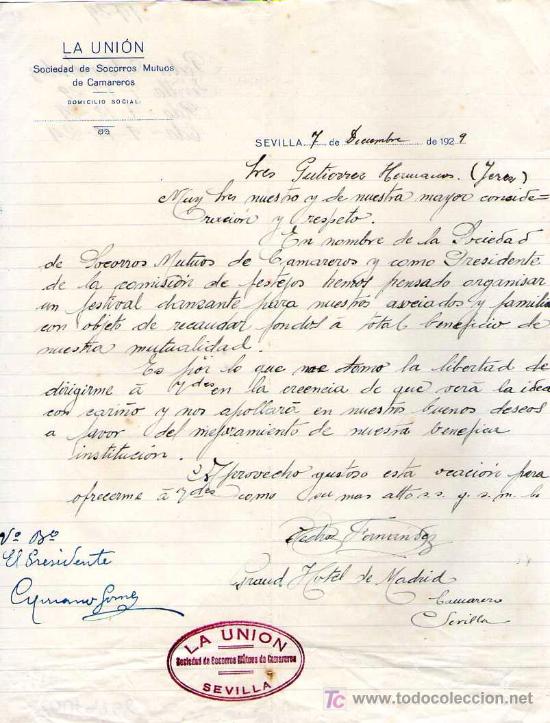 LA UNIÓN
Sociedad de Socorros Mutuos
de Camareros
DOMICILIO SOCIAL:
SEVILLA 7 de Diciembre de 1929
Sres Gutierrez Hermanos. (Jerez)
Muy Sres nuestro y de nuestra mayor conside=
racion y respeto.
En nombre de la Sociedad
de Socorros Mutuos de Camareros y como Presidente
de la comisión de festejos hemos pensado organisar
un festival danzante para nuestro asociados y familia
con objeto de recaudar fondos á total beneficio de
nuestra mutualidad.
Es por lo que me tomo la libertad de
dirigirme á Vdes en la creencia de que verá la idea
con cariño y nos apollará en nuestro buenos deseos
a favor del mejoramiento de nuestra benefica
institución.
Aprovecho gustoso esta ocacion para
ofrecerme á Vdes como su mas atto s.s. q.s.m.b
Pedro Fernandez
Grand Hotel de Madrid
Camarero
Sevilla
Vº Bº
El Presidente
Cipriano Gomez
LA UNION
Sociedad de Socorros Mútuos de Camareros
SEVILLA
TC www.todocoleccion.net